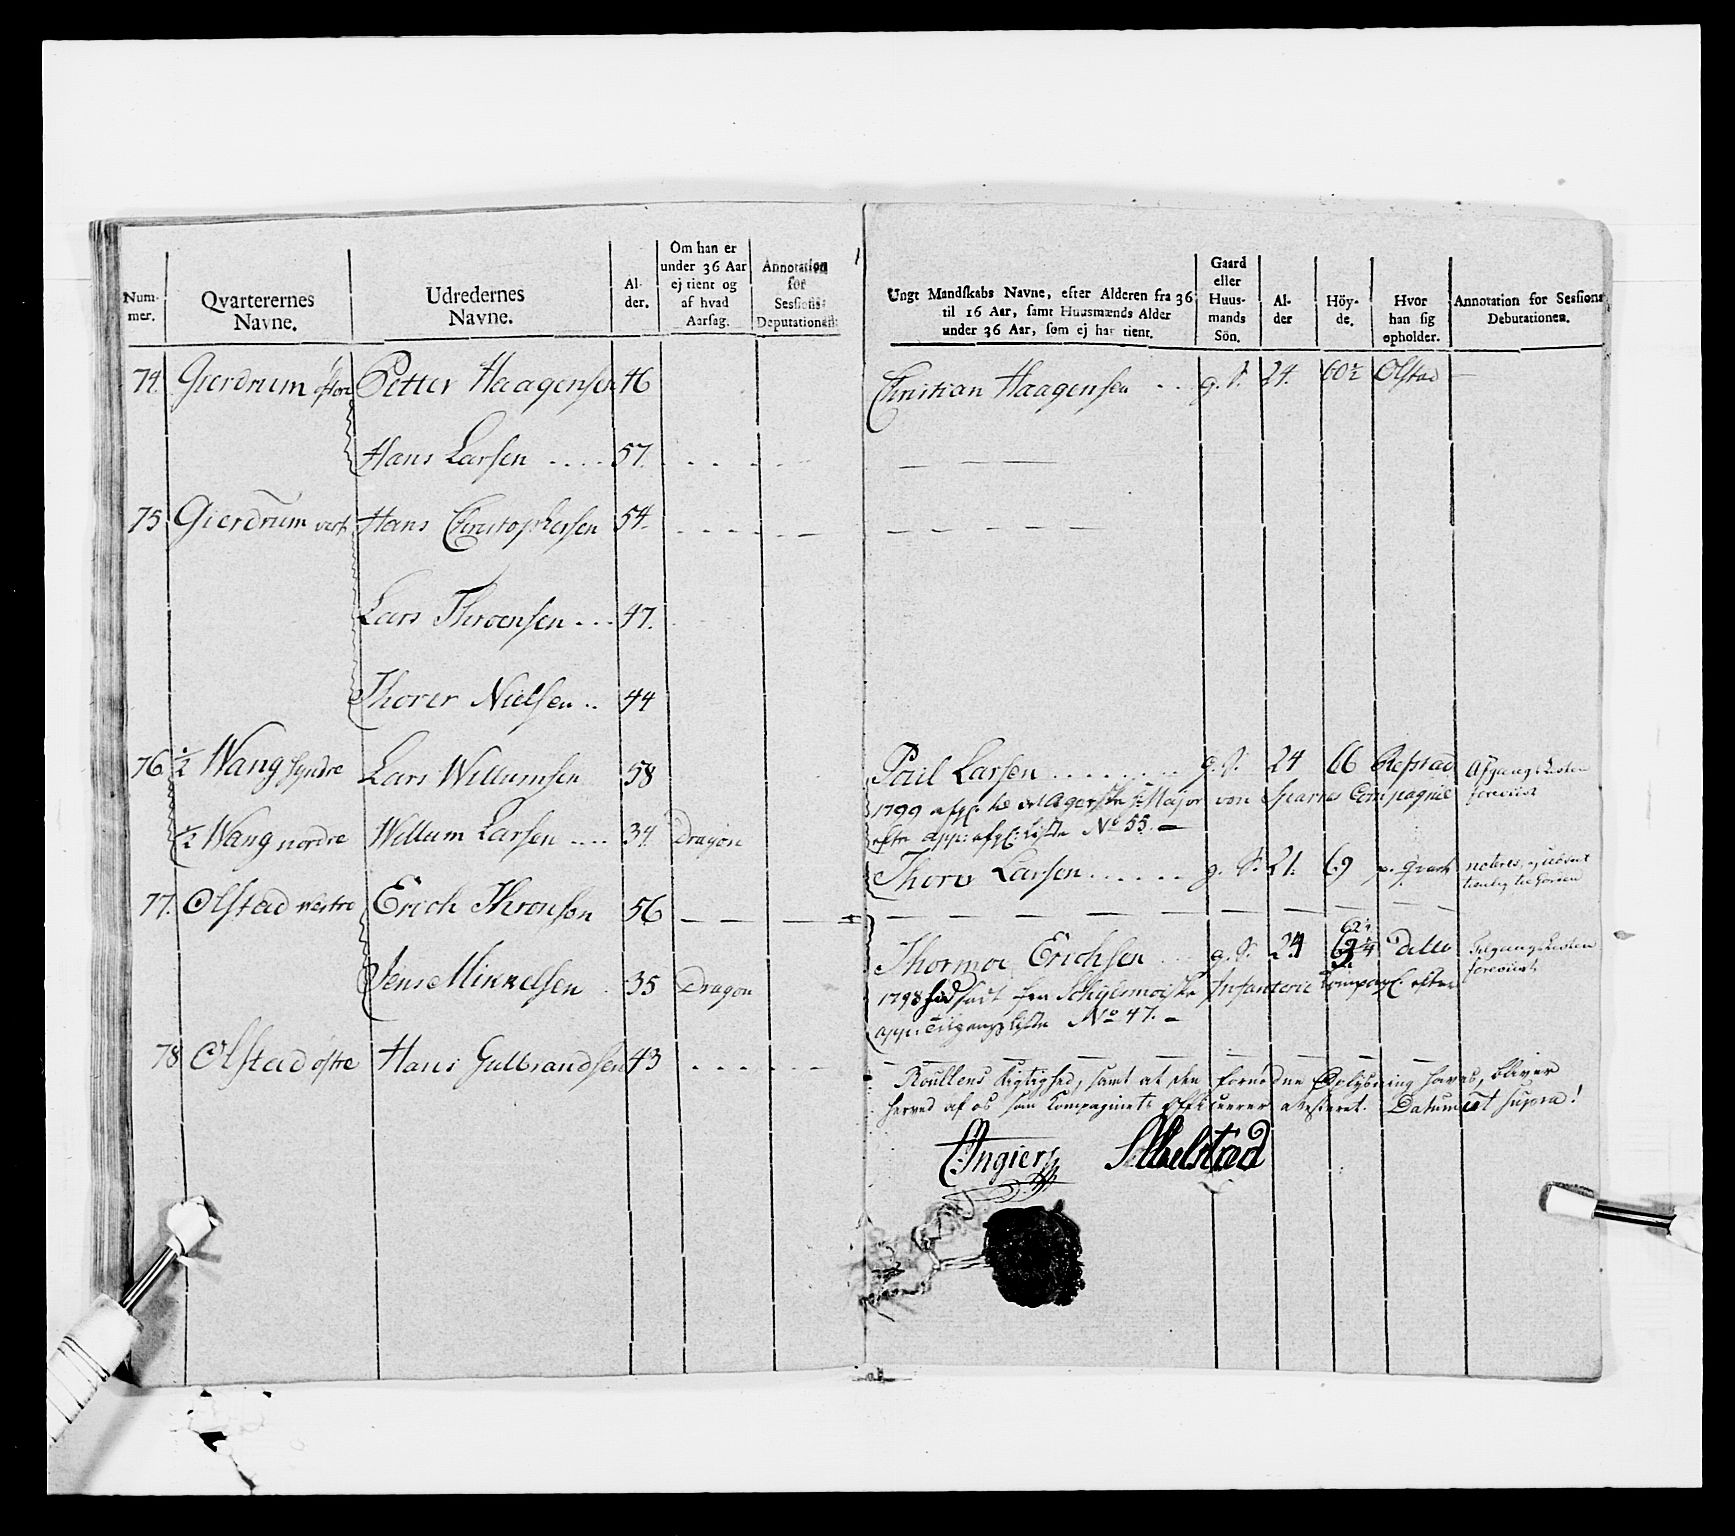 Num-
mer.
Qvarterernes
Navne.
Udredernes
Navne.
Al-
der.
Om han er
under 36 Aar
ej tient og
af hvad
Aarsag.
Annotation
for
Sessions-
Deputationen.
74. Gierdrum østre Petter Haagensen 46
Hans Larsen .... 57.
75 Gierdrum vest. Hans Christophersen 54.
Lars Throensen ... 47.
Thorer Nielsen .. 44
76 ½ Wang syndre Lars Willumsen 58
½ Wang nordre Willum Larsen .... 34. Dragon
77. Olstad vestre Erich Thronsen 56
Jens Mikkelsen 35 Dragon
78 Olstad østre Hans Gulbrandsen 43
Ungt Mandskabs Navne, efter Alderen fra 36
til 16 Aar, samt Huusmænds Alder
under 36 Aar, som ej har tient.
Gaard
eller
Huus-
mands
Sön.
Al-
der
Höy-
de.
Hvor
han sig
opholder.
Annotation for Sessions
Debutationen.
Christian Haagensen .. g. S. 24. 60½ Olstad
Poul Larsen ........ g. S. 24 66 Refstad Afgangs Listen
1799 afg: til det Agersh: Major von Compagnie
efter app: afg: Liste No 55.
Thore Larsen ...... g. S. 21. noteres
62½
Thormoe Erichsen g. S. 24 Ditto Tilgangs Listen
1798 fra Infanterie Compag: efter
app: Tilgangs Liste No 47.
Roullens Rigtighed, samt at den fornødne Oplysning haves, bliver
herved af os som Compagniets Officierer atesteret. Datum ut supra!
Angier